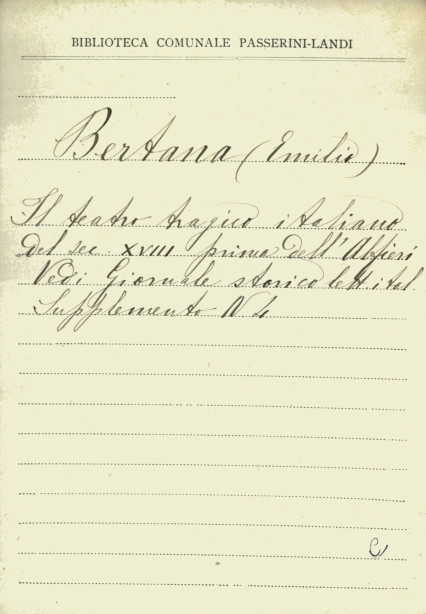 BIBLIOTECA COMUNALE PASSERINI-LANDI
Bertana (Emilio)
Il teatro tragico italiano
del sec. XVIII prima dell'Alfieri
Vedi Giornale storico lett ital
Supplemento N 4